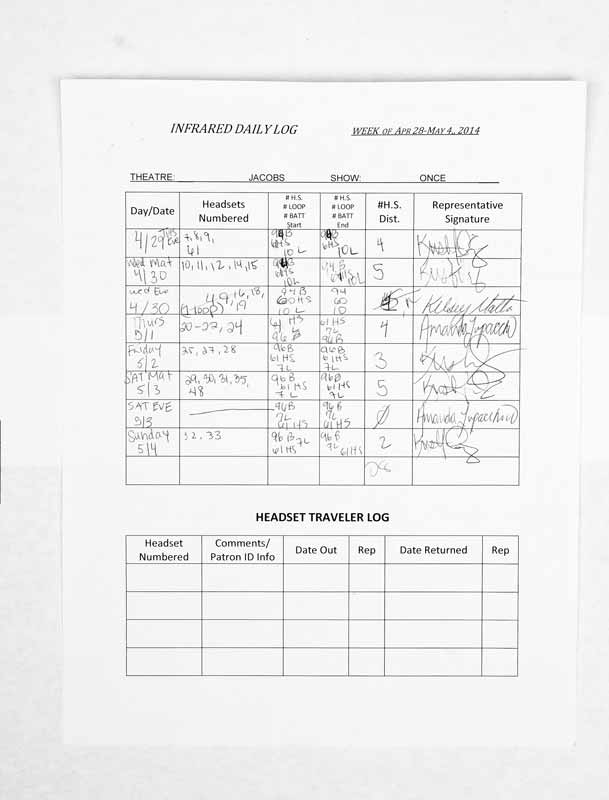 INFRARED DAILY LOG WEEK OF APR 28-MAY 4, 2014
THEATRE: JACOBS SHOW: ONCE
Day/Date Headsets Numbered # H.S. # LOOP # BATT Start # H.S. # LOOP # BATT End #H.S. Dist. Representative Signature
4/29 Tues Eve 7, 8, 9, 61 61HS 10L 61HS 10L 4
Wed Mat 4/30 10, 11, 12, 14, 15 94B 61HS 10L 94B 61HS 10L 5
Wed Eve 4/30 49, 16, 18, 19 (1-loop) 94B 60HS 10L 94 60 10 Kelsey
Thurs 5/1 20-22, 24 61 HS 7L 96B 61HS 7L 96B 4 Amanda
Friday 5/2 25, 27, 28 96B 61HS 7L 96B 61HS 7L 3
SAT Mat 5/3 29, 30, 31, 35, 48 96B 61HS 7L 96B 61HS 7L 5
SAT EVE 5/3 96B 7L 61HS 96B 7L 61HS Ø Amanda
Sunday 5/4 32, 33 96B 7L 61HS 96B 7L 61HS 2
HEADSET TRAVELER LOG
Headset Numbered Comments/ Patron ID Info Date Out Rep Date Returned Rep